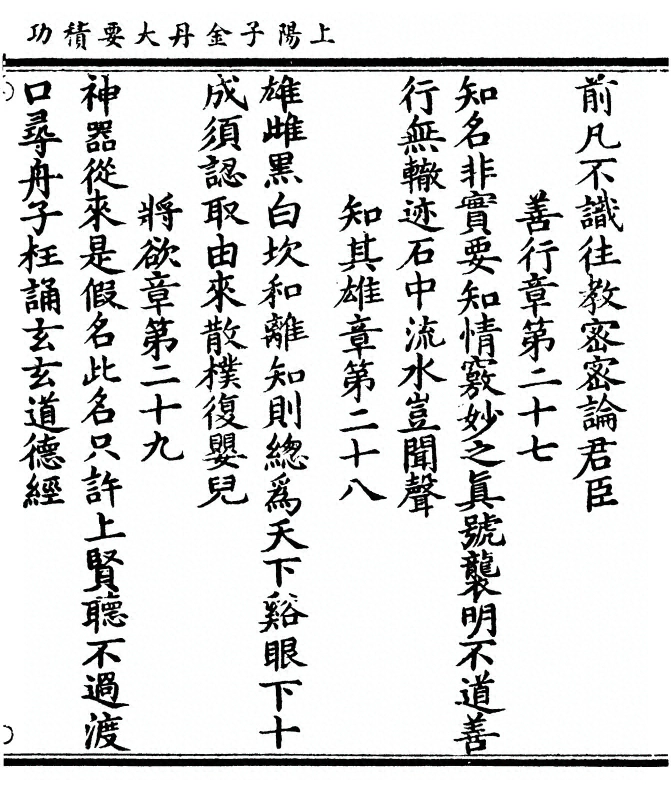 上陽子金丹大要積功
前凡不識往教密密論君臣
善行章第二十七
知名非實要知情竅妙之眞號襲明不道善
行無轍迹石中流水豈聞聲
知其雄章第二十八
雄雌黑白坎和離知則總爲天下谿眼下十
成須認取由來散樸復嬰兒
將欲章第二十九
神器從來是假名此名只許上賢聽不過渡
口尋舟子枉誦玄玄道德經